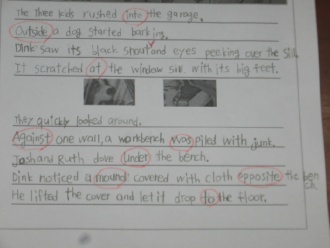 The three kids rushed into the garage.
Outside a dog started barking.
Dink saw its black snout and eyes peeking over the sill.
It scratched at the window sill with its big feet.
They quickly looked around.
Against one wall, a workbench was piled with junk.
Josh and Ruth dove under the bench.
Dink noticed a mound covered with cloth opposite the ben
ch.
He lifted the cover and let it drop to the floor.